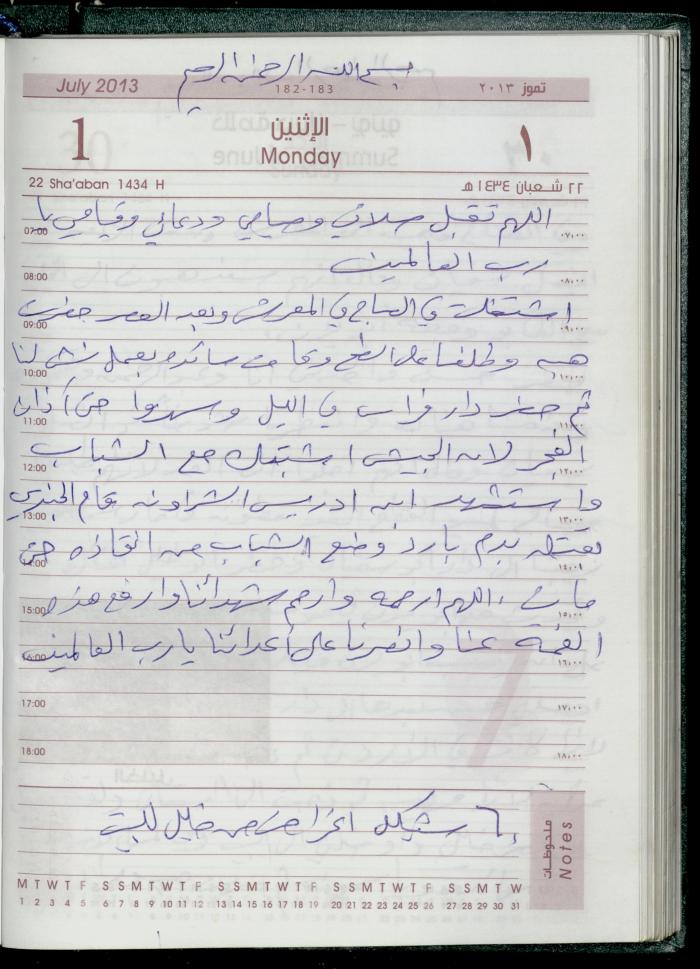 بسم الله الرحمن الرحيم
July 2013
182-183
تموز ٢٠١٣
1
الإثنين
Monday
١
22 Sha'aban 1434 H
٢٢ شعبان ١٤٣٤ هـ
اللهم تقبل صلاتي وصيامي ودعائي وقيامي يا
07:00 ٠٧،٠٠
رب العالمين
08:00 ٠٨،٠٠
اشتغلت في الصباح في المعرش وبعد العصر حضرت
09:00 ٠٩،٠٠
هبه وطلعنا على السطح وقامت سائده بعمل لنا
10:00 ١٠،٠٠
ثم حضر دار فراس في الليل وسهروا حتى أذان
11:00 ١١،٠٠
الفجر لانه الجيش اشتبك مع الشباب
12:00 ١٢،٠٠
واستشهد ابن ادريس الشراونه قام الجندي
13:00 ١٣،٠٠
بقتله بدم بارد ومنع الشباب من انقاذه حتى
14:00 ١٤،٠٠
مات، اللهم ارحمه وارحم شهدائنا وارفع هذه
15:00 ١٥،٠٠
الغمة عنا وانصرنا على أعدائنا يا رب العالمين
16:00 ١٦،٠٠
17:00 ١٧،٠٠
18:00 ١٨،٠٠
٦٠ شيكل من خليل للبيت
ملحوظات
Notes
M T W T F S S M T W T F S S M T W T F S S M T W T F S S M T W
1 2 3 4 5 6 7 8 9 10 11 12 13 14 15 16 17 18 19 20 21 22 23 24 25 26 27 28 29 30 31